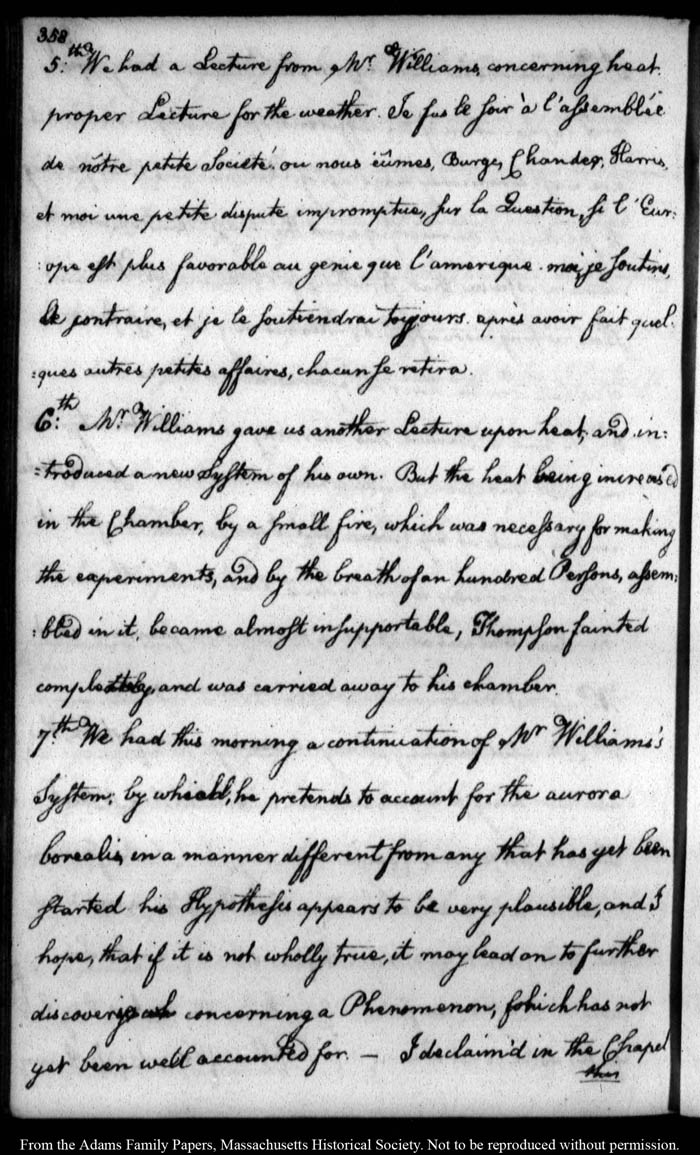 358
5:th We had a Lecture from Mr. Williams, concerning heat.
proper Lecture for the weather. Je fus le soir à l'assemblée
de nôtre petite Societé. ou nous eûmes, Burge, Chandler, Harris,
et moi une petite dispute impromptue, sur la Question, si l'Eur:
:ope est plus favorable au genie que l'amerique. moi, je soutins,
le contraire, et je le soutiendrai toujours. après avoir fait quel:
:ques autres petites affaires, chacun se retira.
6:th Mr. Williams gave us another Lecture upon heat, and in:
:troduced a new System of his own. But the heat being increased
in the Chamber, by a small fire, which was necessary for making
the experiments, and by the breath of an hundred Persons, assem:
:bled in it, became almost insupportable, Thompson fainted
completely, and was carried away to his chamber.
7.th We had this morning a continuation of Mr Williams's
System, by which, he pretends to account for the aurora
borealis, in a manner different from any that has yet been
started his Hypothesis appears to be very plausible, and I
hope, that if it is not wholly true, it may lead on to further
discoveries concerning a Phenomenon, which has not
yet been well accounted for. — I declaim'd in the Chapel
this
From the Adams Family Papers, Massachusetts Historical Society. Not to be reproduced without permission.